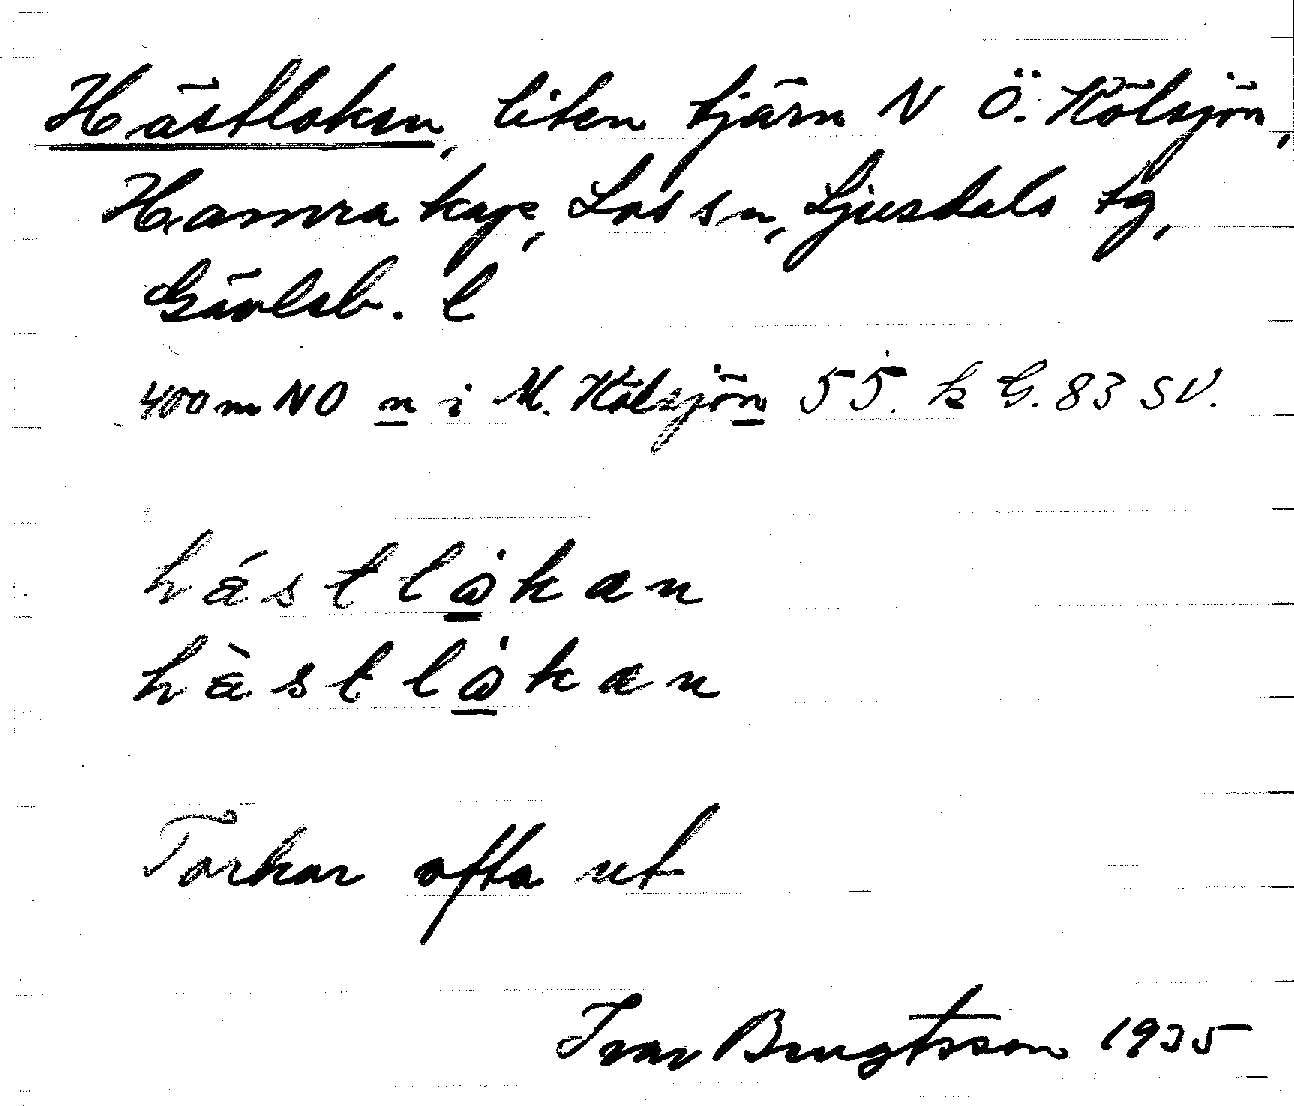 Hästloken, liten tjärn N Ö. Kölsjön,
Hamra kap, Los sn, Ljusdals tg,
Gävleb. l
400 m NO n i M. Kölsjön 55. k G. 83 SV.
hástlåkan
hàstlåkan
Torkar ofta ut
Ivar Bengtsson 1935